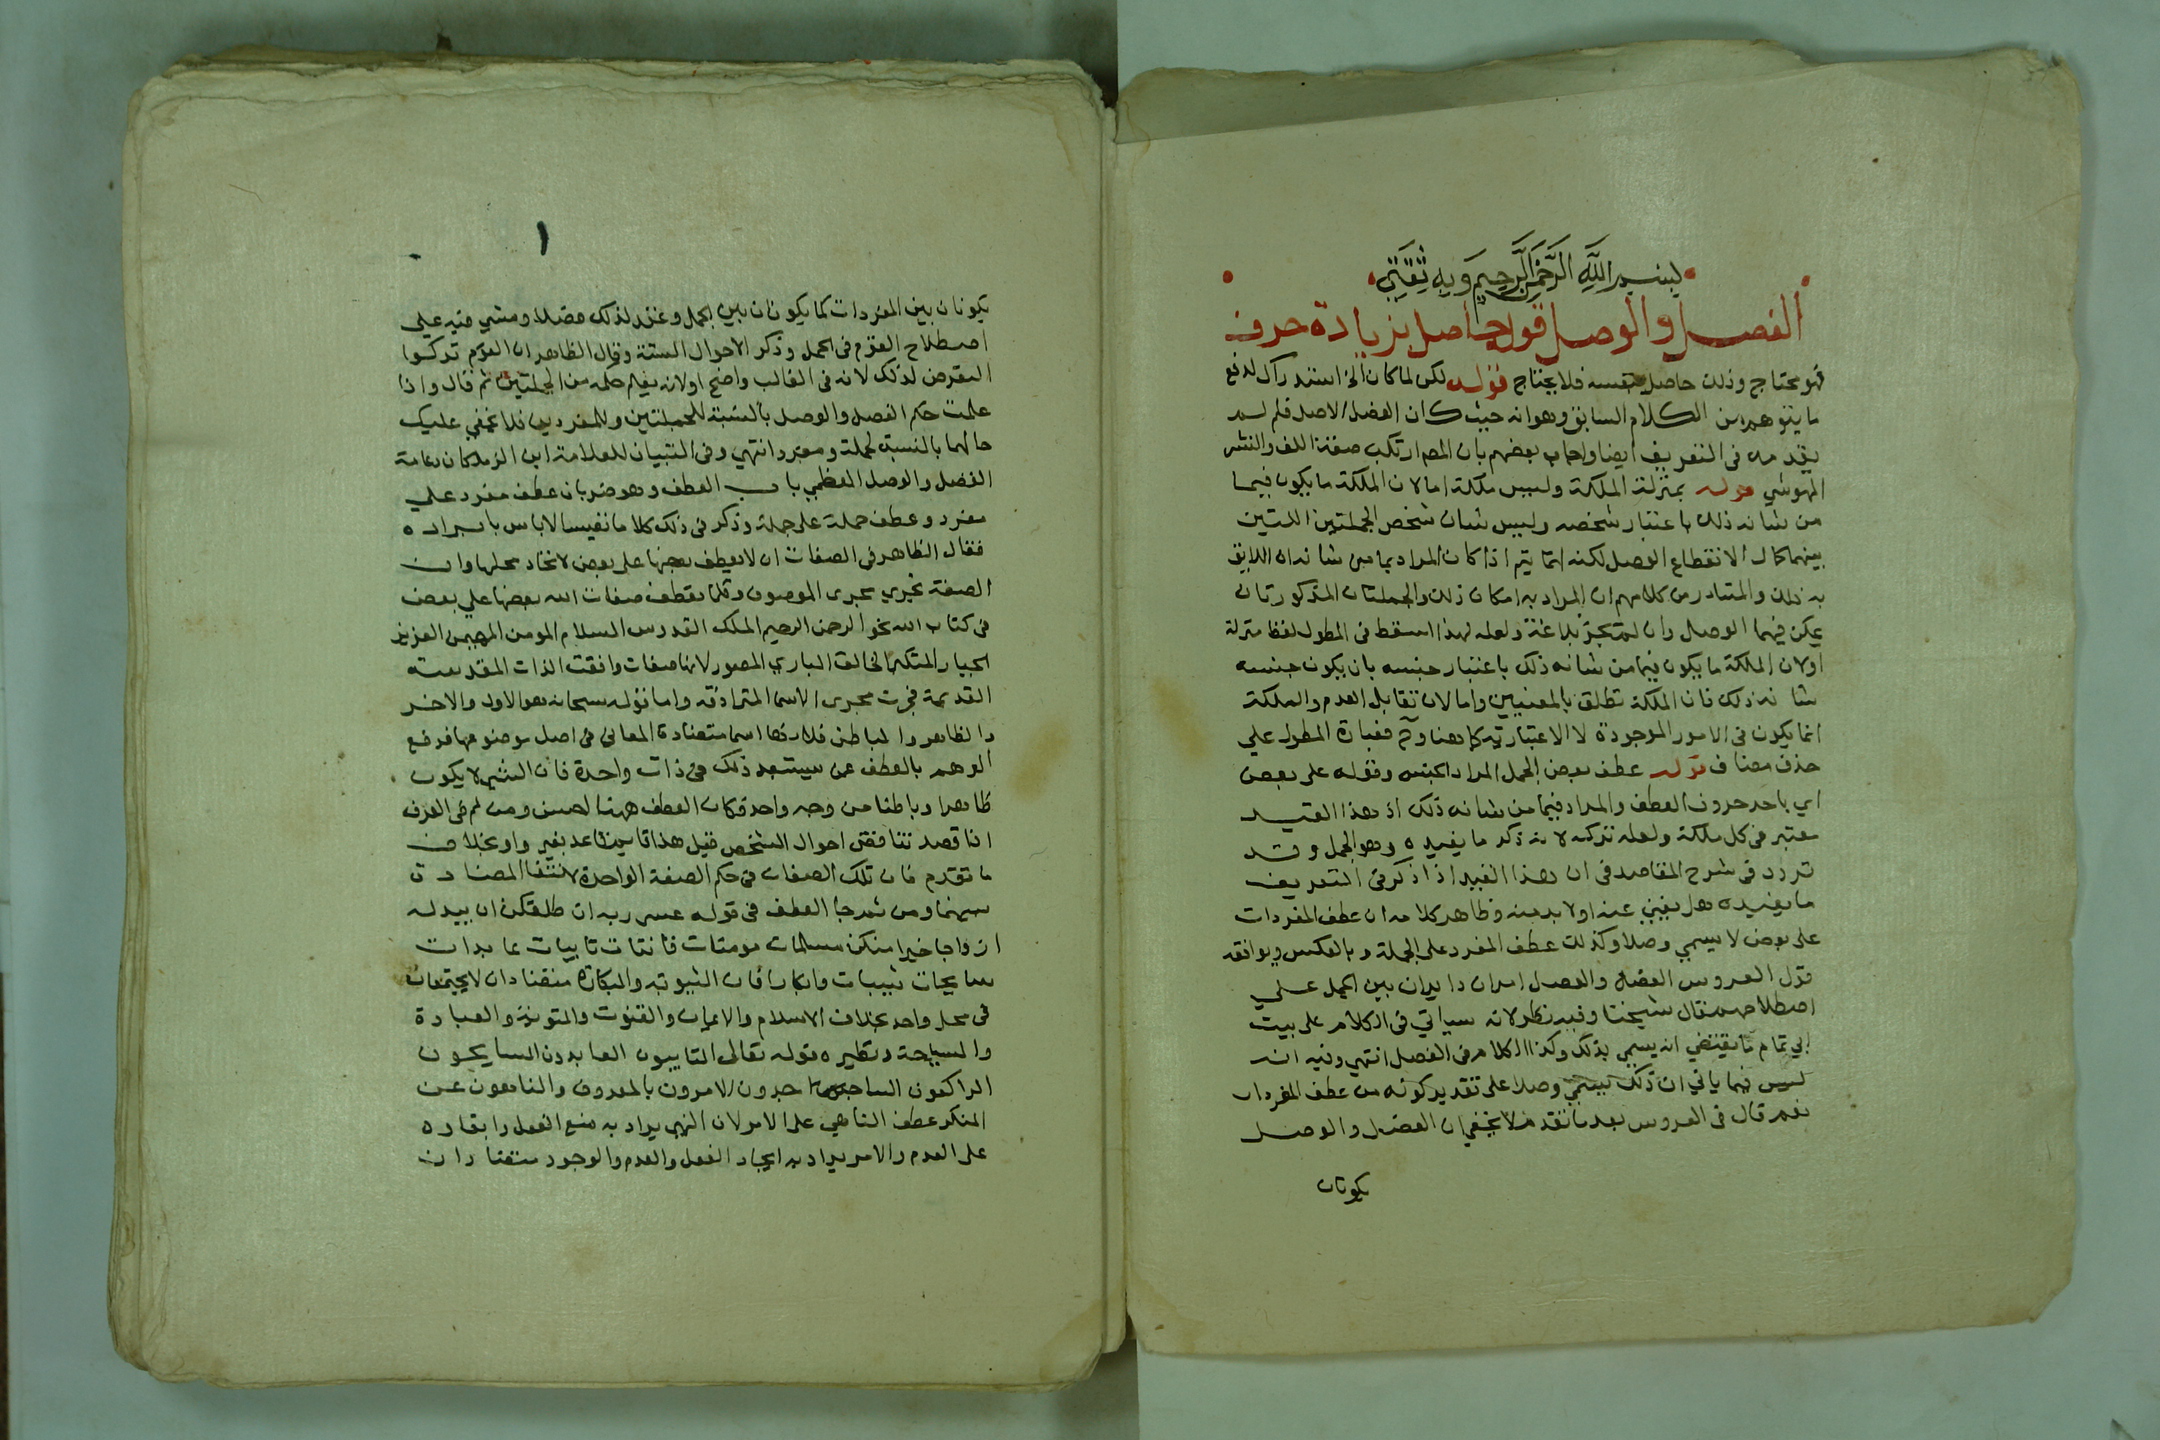 بسم الله الرحمن الرحيم وبه ثقتي
الفصل والوصل قوله حاصل بزيادة حرف
فهو محتاج وذلك حاصل بنفسه فلا يحتاج قوله لكن لما كان الخ استدراك لدفع
ما يتوهم من الكلام السابق وهو انه حيث كان الفصل الاصل فلم لم
يقدمه في التعريف ايضا واجاب بعضهم بان المص ارتكب صنعة اللف والنشر
المهوشي قوله بمنزلة الملكة وليس ملكة اما لان الملكة ما يكون فيما
من شانه ذلك باعتبار شخصه وليس شان شخص الجملتين اللتين
بينهما كمال الانقطاع الوصل لكنه انما يتم اذا كان المراد بما من شانه ان اللايق
به ذلك والمتبادر من كلامهم ان المراد به امكان ذلك والجملتان المذكورتان
يمكن فيهما الوصل وان لم تجز بلاغة ولعله لهذا اسقط في المطول لفظ منزلة
اولان الملكة ما يكون فيما من شانه ذلك باعتبار جنسه بان يكون جنسه
شانه ذلك فان الملكة تطلق بالمعنيين واما لان تقابل العدم والملكة
انما يكون في الامور الموجودة لا الاعتبارية كما هنا وح فعبارة المطول على
حذف مضاف قوله عطف بعض الجمل المراد الجنس وقوله على بعض
اي باحد حروف العطف والمراد فيما من شانه ذلك اذ هذا القيد
معتبر في كل ملكة ولعله تركه لانه ذكر ما يفيده وهو الجمل وقد
تردد في شرح المقاصد في ان هذا القيد اذا ذكر في التعريف
ما يفيده هل يغني عنه اولا بد منه وظاهر كلامه ان عطف المفردات
على بعض لا يسمى وصلا وكذلك عطف المفرد على الجملة وبالعكس ويوافقه
قول العروس الفصل والوصل امران دايران بين الجمل على
اصطلاحهم فقال شيخنا وفيه نظر لانه سياتي في الكلام على بيت
ابي تمام ما يقتضي انه يسمى بذلك وكذا الكلام في الفصل انتهى وفيه انه
ليس فيما ياتي ان ذلك يسمى وصلا على تقدير كونه من عطف المفردات
نعم قال في العروس بعد ما تقدم لا يخفى ان الفصل والوصل
يكونان
١
يكونان بين المفردات كما يكونان بين الجمل وعقد لذلك فصلا ومشى فيه على
اصطلاح القوم في الجمل وذكر الاحوال الستة وقال الظاهر ان القوم تركوا
التعرض لذلك لانه في الغالب واضح اولانه يعلم حكمه من الجملتين ثم قال واذا
علمت حكم الفصل والوصل بالنسبة للجملتين وللمفردين فلا يخفى عليك
حالهما بالنسبة لجملة ومفرد انتهى وفي التبيان للعلامة ابن الزملكان نعامة
الفصل والوصل العظمي باب العطف وهو ضربان عطف مفرد على
مفرد وعطف جملة على جملة وذكر في ذلك كلاما نفيسا لا باس بايراده
فقال الظاهر في الصفات ان لا يعطف بعضها على بعض لاتحاد محلها وان
الصفة تجري مجرى الموصوف وقلما تعطف صفات الله بعضها على بعض
في كتاب الله نحو الرحمن الرحيم الملك القدوس السلام المومن المهيمن العزيز
الجبار المتكبر الخالق الباري المصور لانها صفات وافقت الذات المقدسة
القديمة فجرت مجرى الاسما المترادفة واما قوله سبحانه هو الاول والاخر
والظاهر والباطن فلان هذا اسما متضادة المعاني في اصل موضوعها فرفع
الوهم بالعطف عن يستبعد ذلك في ذات واحدة فان الشي لا يكون
ظاهرا وباطنا من وجه واحد فكان العطف ههنا لحسن ومن ثم في العرف
اذا قصد تناقض احوال الشخص قيل هذا قايم قاعد بغير واو بخلاف
ما تقدم فان تلك الصفات في حكم الصفة الواحدة لانتفا المضادة
بينهما ومن ثم جا العطف في قوله عسى ربه ان طلقكن ان يبدله
ازواجا خيرا منكن مسلمات مومنات قانتات تايبات عابدات
سايحات ثيبات وابكارا فان الثيوبة والبكارة متضادان لا يجتمعان
في محل واحد بخلاف الاسلام والايمان والقنوت والتوبة والعبادة
والسياحة ونظيره قوله تعالى التايبون العابدون السايحون
الراكعون الساجدون الامرون بالمعروف والناهون عن
المنكر عطف الناهي على الامر لان النهي يراد به منع الفعل وابقاره
على العدم والامر يراد به ايجاد الفعل والعدم والوجود متضادان